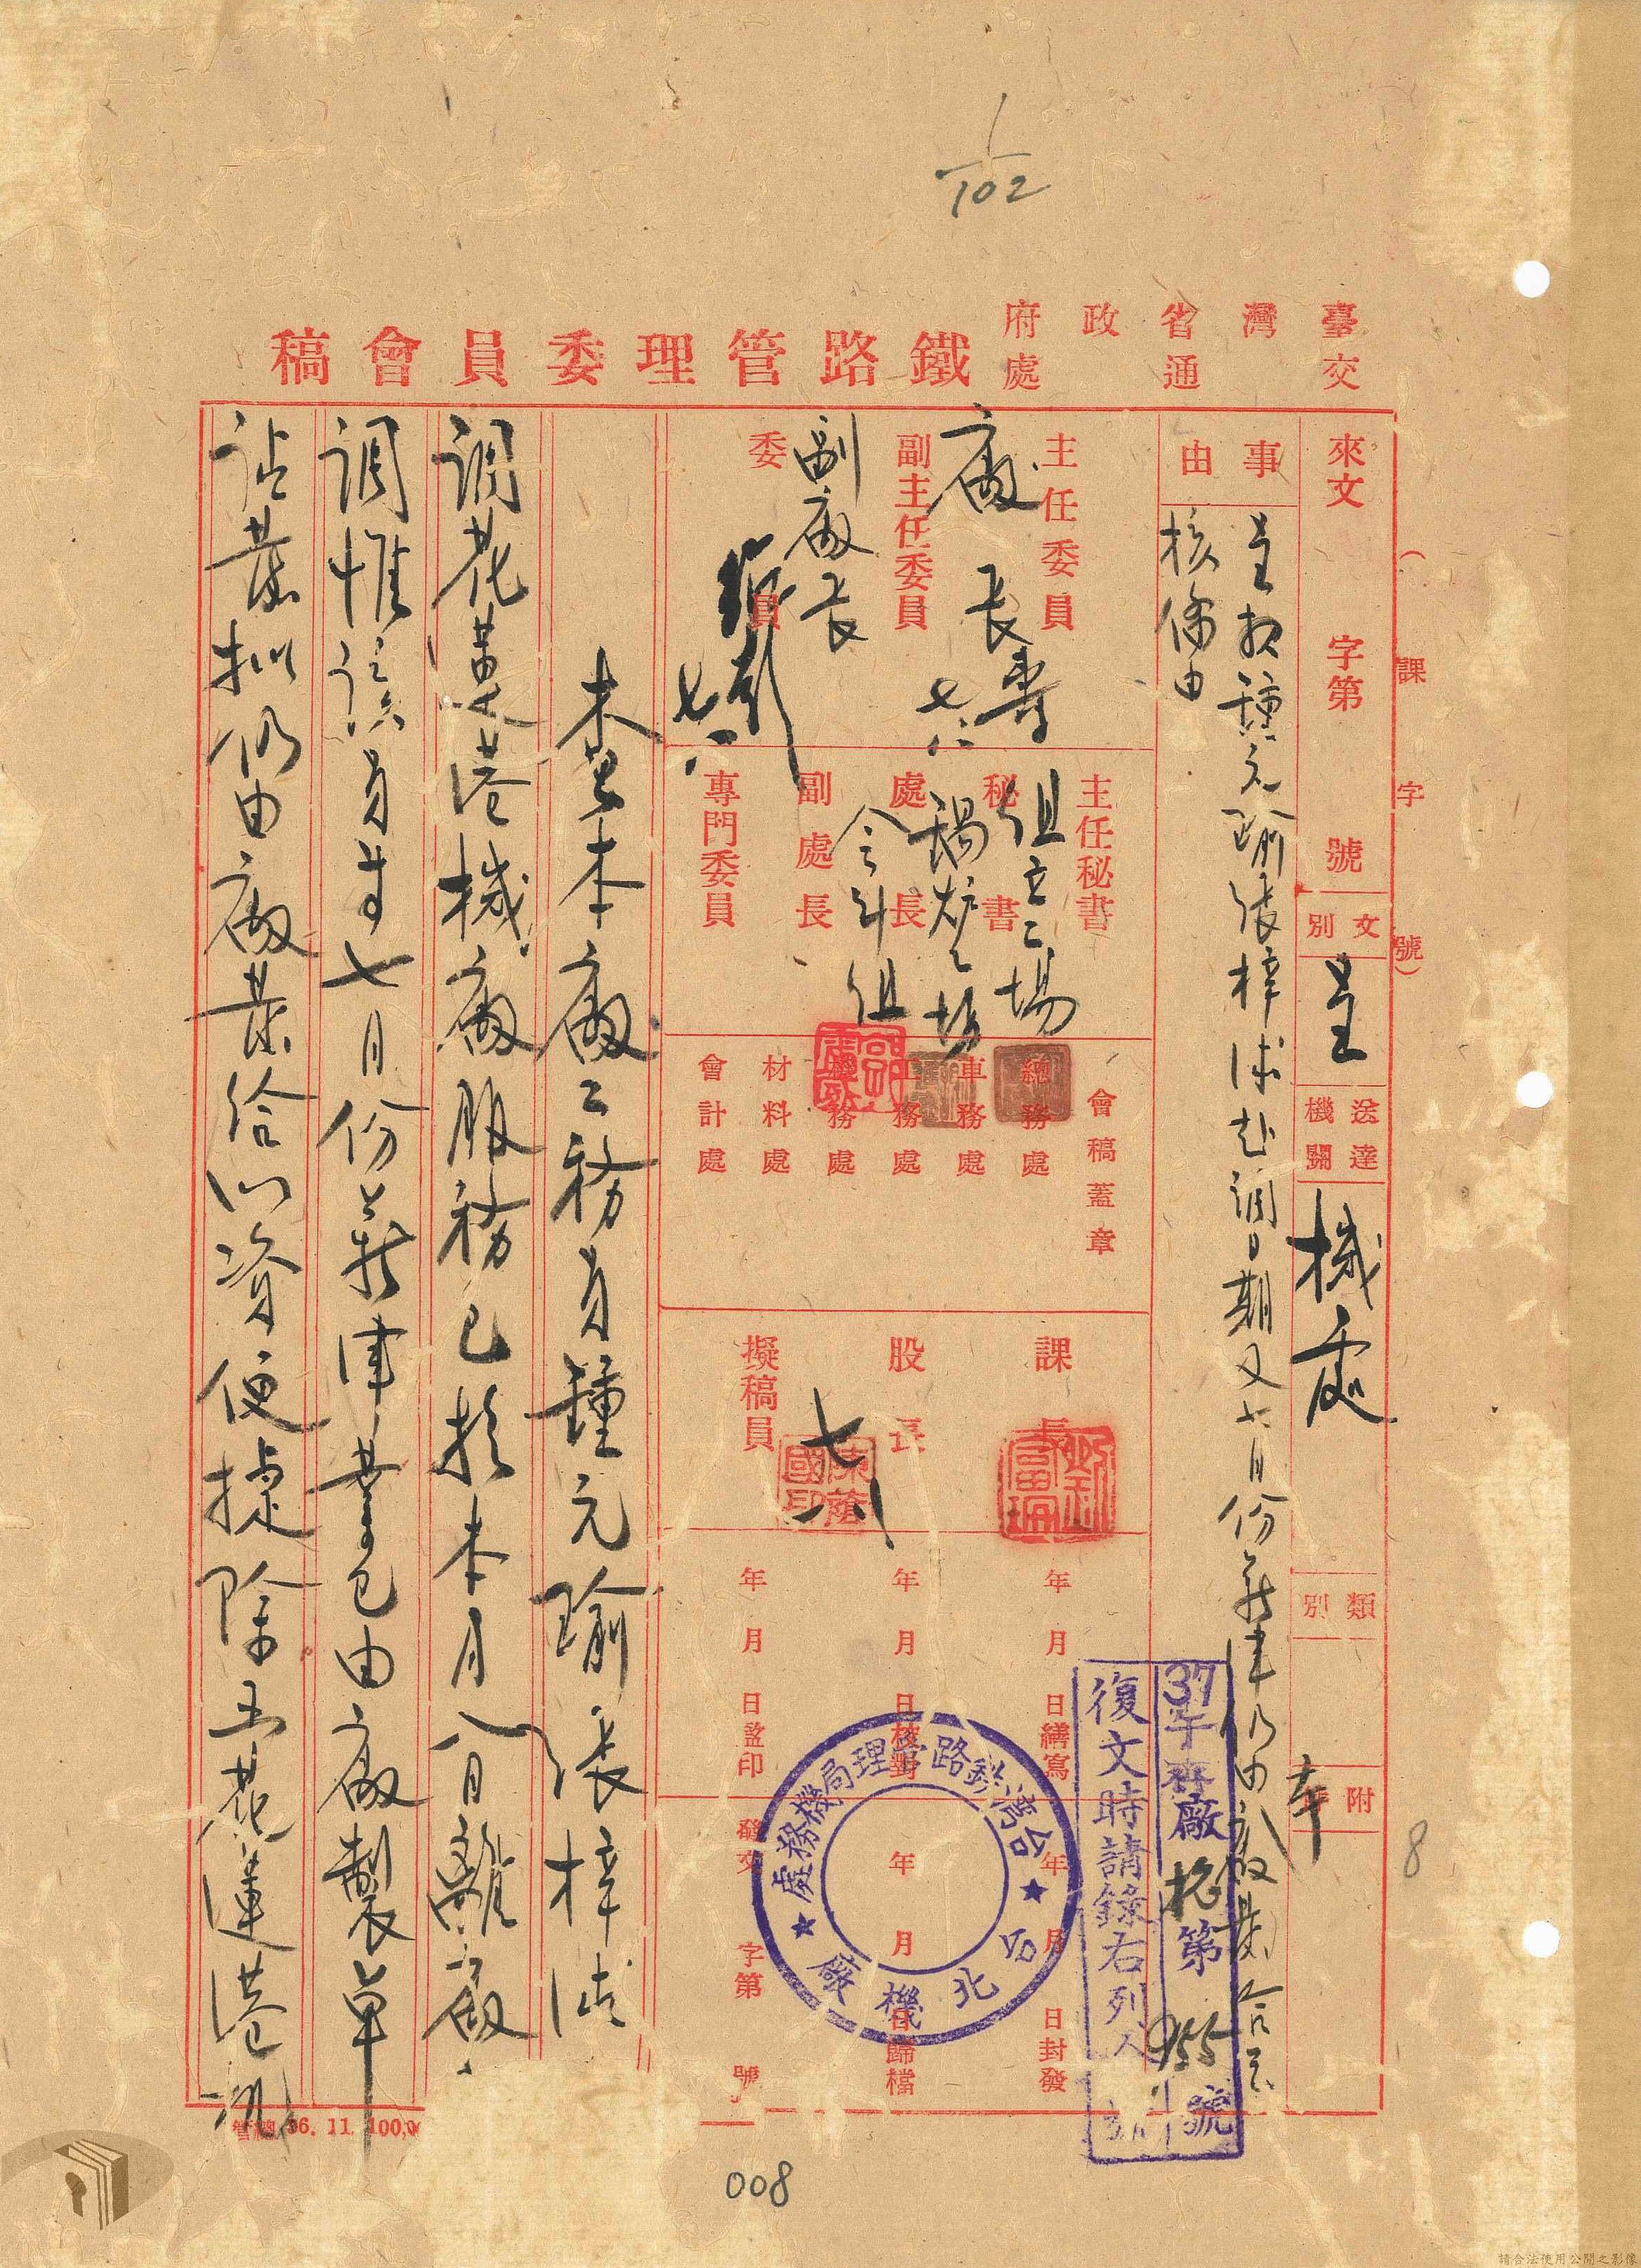 1/102
臺灣省政府
交通處
鐵路管理委員會稿
(課字號)
來文 字第 號
文別 呈
送達機關 機處
類別
附
事由
呈報鍾元瑜張梓 赴調日期又七月份薪津仍由廠 給
核備由
主任委員
廠長
副主任委員
副廠長
委員
七
主任秘書
組立工場
秘書
鍋炉工場
處長
副處長
專門委員
會稿蓋章
總務處
車務處
工務處
機務處
材料處
會計處
課長
股長
擬稿員
年 月 日繕寫
年 月 日校對
年 月 日蓋印
年 月 日封發
年 月 日歸檔
發文 字第 號
37 廠 第955號
復文時請錄右列
台灣鉄路管理局機務處
台北機廠
本廠工務員鍾元瑜張梓
調花蓮港機廠服務已於本月八日離廠
調惟該員等七月份薪津業已由廠製單
擬仍由廠 給以資便捷除 花蓮港
管總 36. 11. 100,0
8
008
請合法使用公開之影像